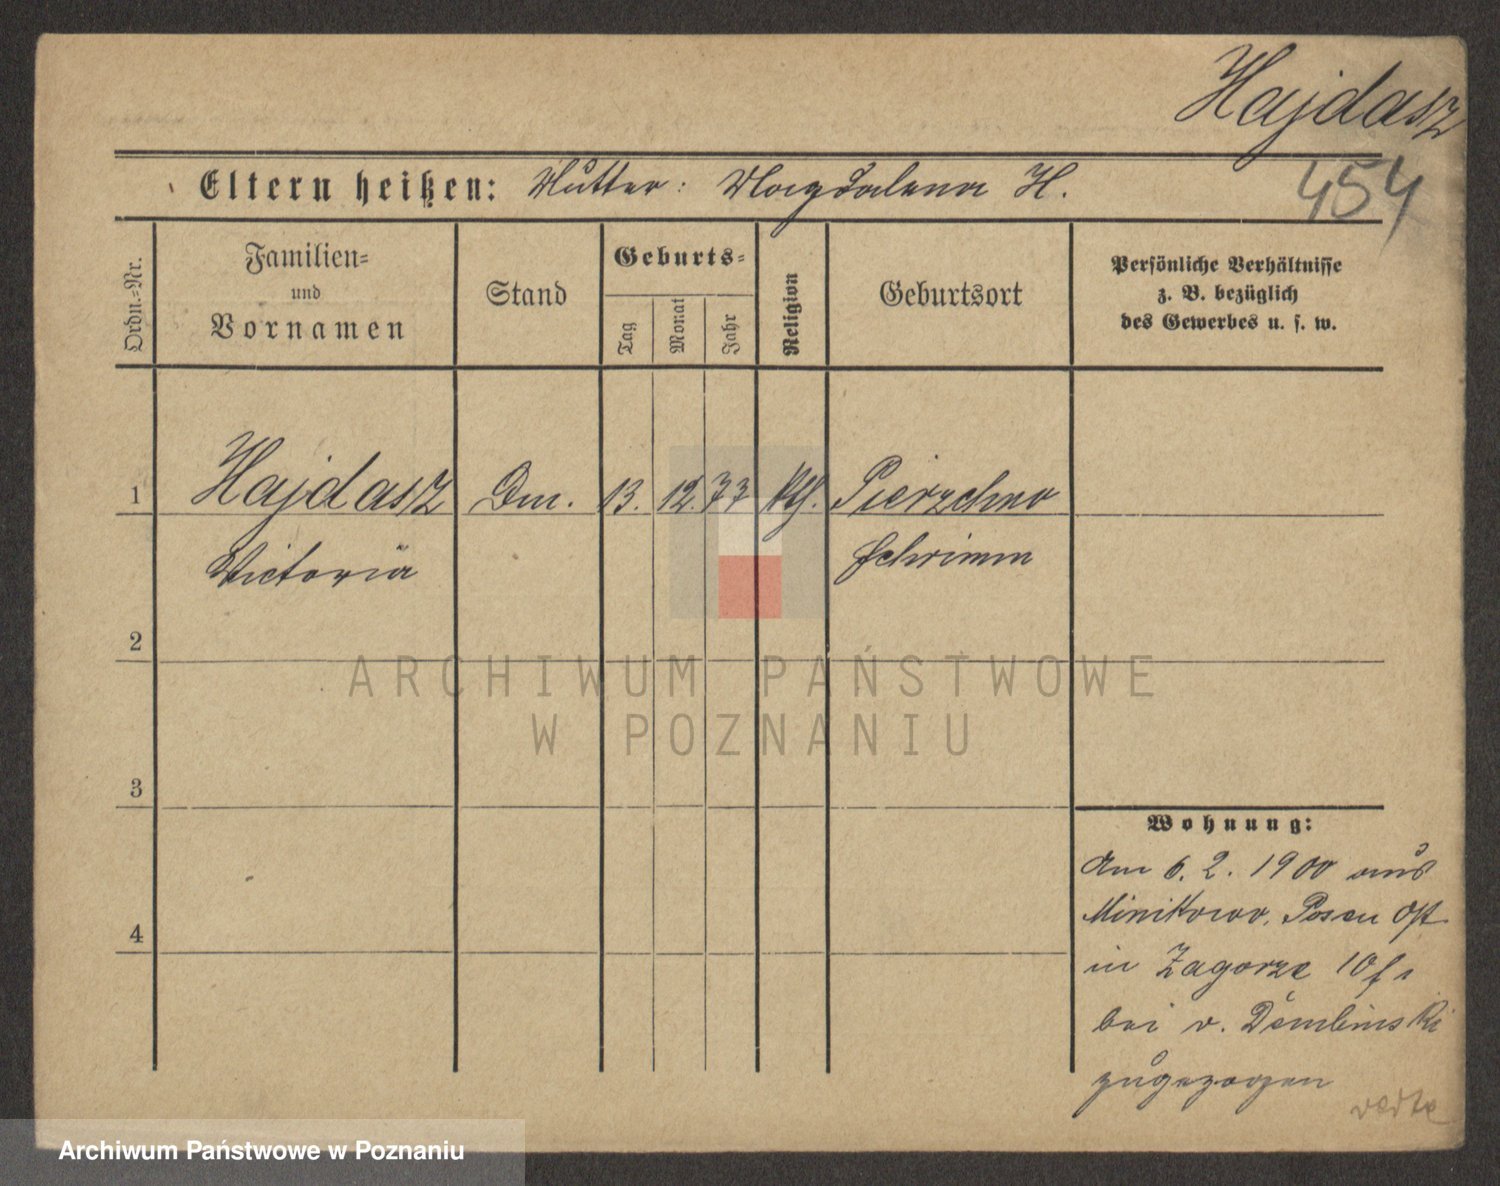 Hajdasz
454
Eltern heißen: Mutter: Magdalena H.
Ordn.=Nr.
Familien=
und
Vornamen
Stand
Geburts=
Tag
Monat
Jahr
Religion
Geburtsort
Persönliche Verhältnisse
z. B. bezüglich
des Gewerbes u. s. w.
1 Hajdasz 13. 12. 77 kth. Pierzchno
Victoria Schrimm
2
3
4
Wohnung:
Am 6. 2. 1900 aus
Minikowo, Posen Ost
in Zagorze 10 f
bei v. Dembinski
zugezogen
verte
ARCHIWUM PAŃSTWOWE
W POZNANIU
Archiwum Państwowe w Poznaniu